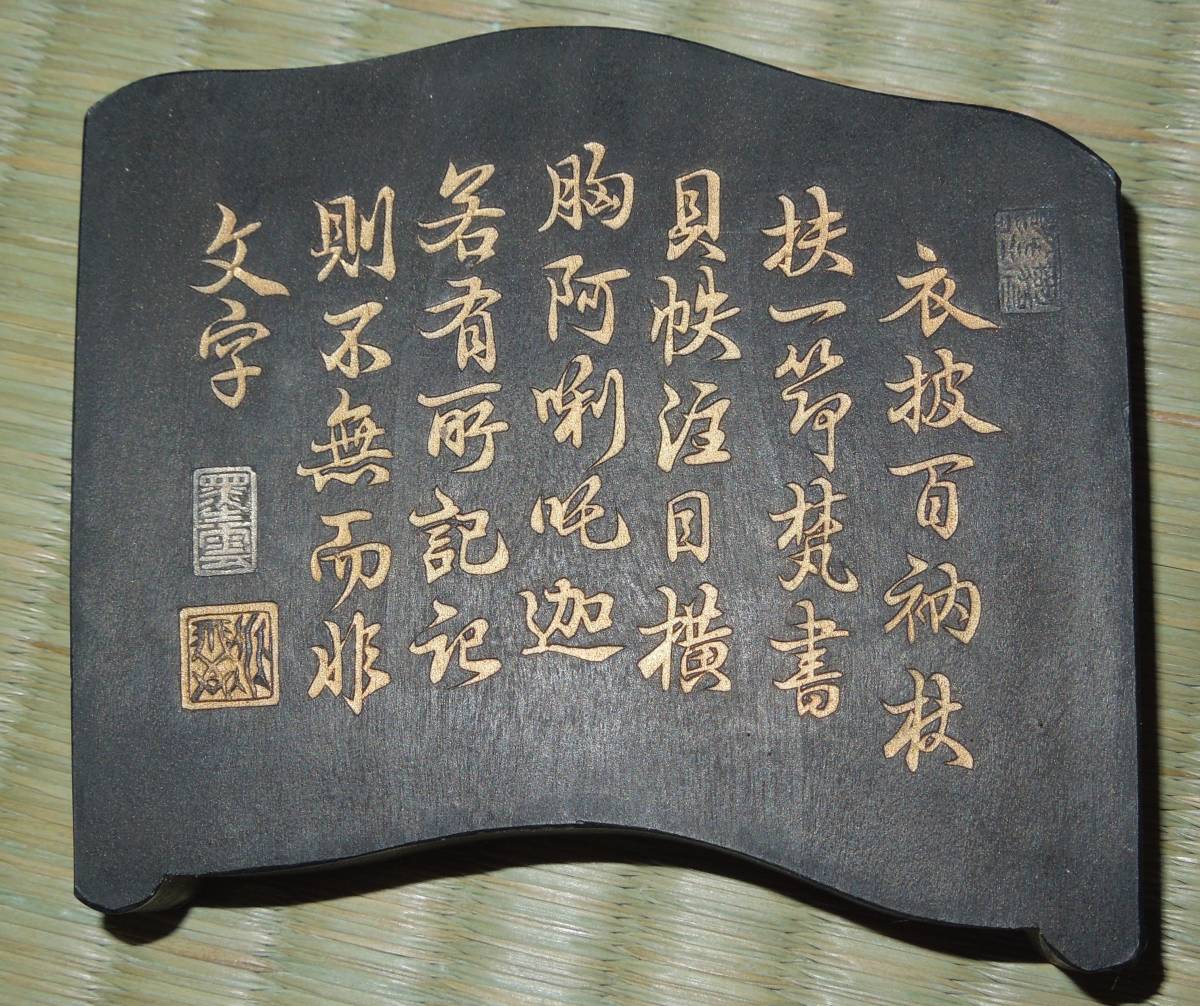 衣披百衲杖
扶一筇梵書
貝帙注目橫
胸阿唎吒迦
若有所記記
則不無而非
文字
墨雲